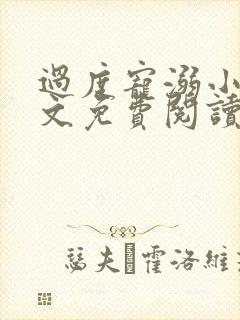 過度寵溺小
文免費閱讀
瑟夫 霍洛維